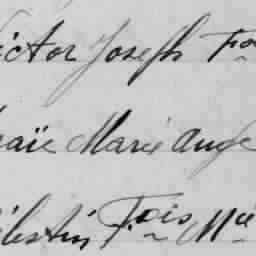 ictor Joseph Fra
aïe Marie Ange
élestin F.ois Mie